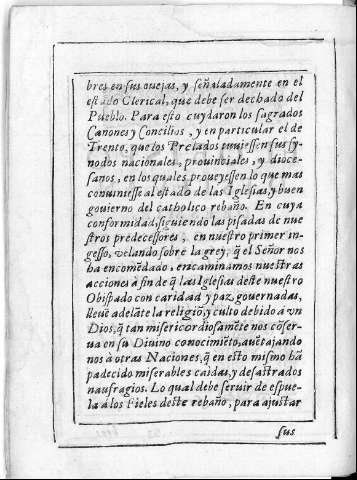 bres en sus ouejas, y señaladamente en el
estado Clerical, que debe ser dechado del
Pueblo. Para esto cuydaron los sagrados
Cañones y Concilios, y en particular el de
Trento, que los Prelados tuuiessen sus sy-
nodos nacionales, prouinciales, y dioce-
sanos, en los quales proueyessen lo que mas
conuiniesse al estado de las Iglesias, y buen
gouierno del catholico rebaño. En cuya
conformidad, siguiendo las pisadas de nue
stros predecessores, en nuestro primer in-
gesso, velando sobre la grey, q̃ el Señor nos
ha encomẽdado, encaminamos nuestras
acciones à fin de q̃ las Iglesias deste nuestro
Obispado con caridad y paz, gouernadas,
lleuẽ adelãte la religiõ, y culto debido à vn
Dios, q̃ tan misericordiosamẽte nos cõser-
ua en su Diuino conocimiẽto, auẽtajando
nos à otras Naciones, q̃ en esto mismo hã
padecido miserables caidas, y desastrados
naufragios. Lo qual debe seruir de espue-
la à los Fieles deste rebaño, para ajustar
sus